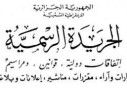 الجمهورية الجزائرية
الديمقراطية الشعبية
الجريدة الرسمية
إتفاقات دولية، قوانين، ومراسيم
قرارات وآراء، مقررات، مناشير، إعلانات وبلاغات